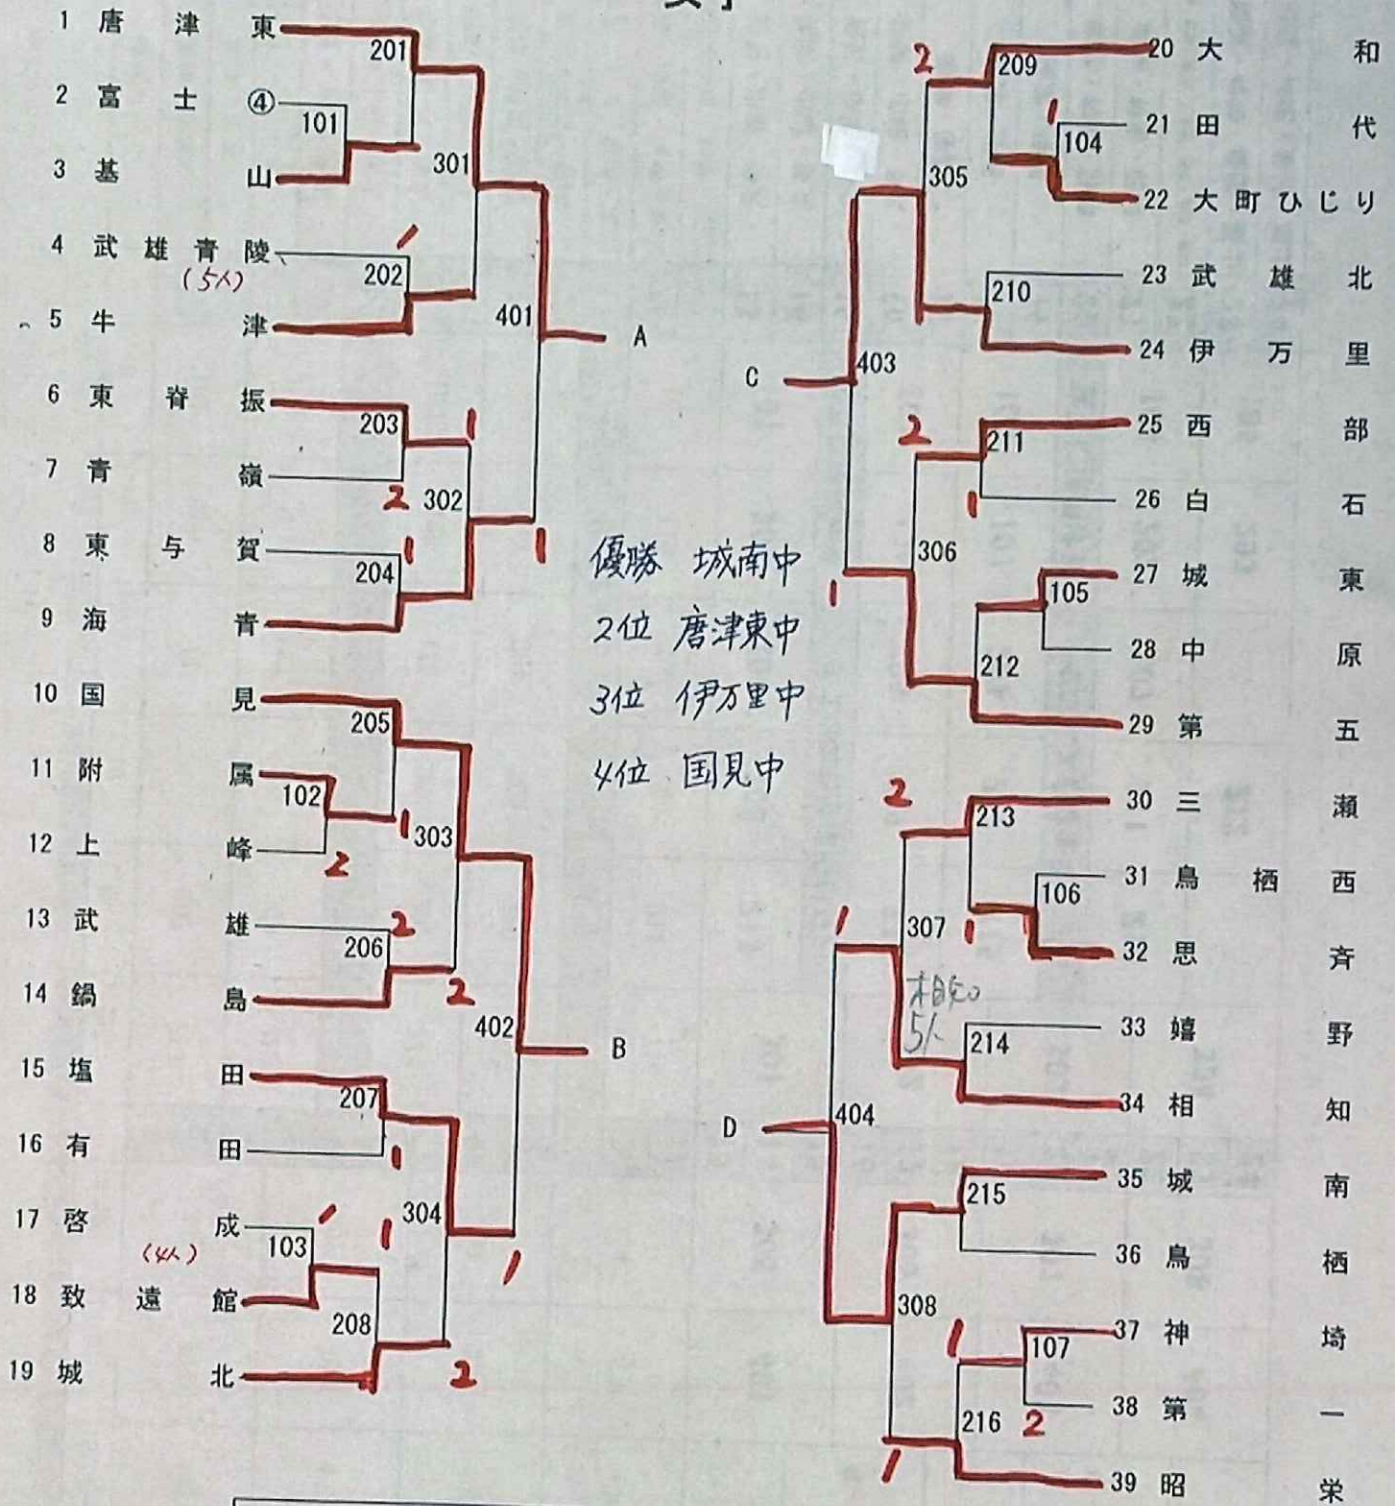 1 唐津東
2 富士④
3 基山
4 武雄青陵
(5人)
5 牛津
6 東脊振
7 青嶺
8 東与賀
9 海青
10 国見
11 附属
12 上峰
13 武雄
14 鍋島
15 塩田
16 有田
17 啓成
(4人)
18 致遠館
19 城北
201
101
301
1
202
401
A
203
1
2
302
1
204
1
205
102
1
303
2
2
206
2
402
B
207
1
1
304
1
103
1
208
2
優勝 城南中
2位 唐津東中
3位 伊万里中
4位 国見中
2
209
1
104
305
210
C
403
2
211
1
306
105
1
212
2
213
106
1
1
307
相知
5人
214
D
404
215
308
1
107
216
2
1
20 大和
21 田代
22 大町ひじり
23 武雄北
24 伊万里
25 西部
26 白石
27 城東
28 中原
29 第五
30 三瀬
31 鳥栖西
32 思斉
33 嬉野
34 相知
35 城南
36 鳥栖
37 神埼
38 第一
39 昭栄